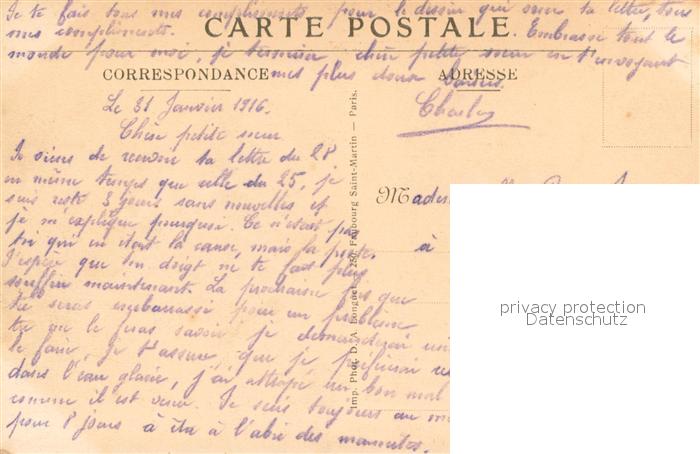 Je te fais tous mes compliments pour le dessin qui orne ta lettre, tous
mes compliments.
CARTE POSTALE.
Embrasse tout le
monde pour moi, je termine chère petite sœur en t'envoyant
CORRESPONDANCE
mes plus doux baisers.
ADRESSE
Charles
Le 31 Janvier 1916.
Chère petite sœur
Je viens de recevoir ta lettre du 28
en même temps que celle du 25, je
suis resté 3 jours sans nouvelles et
je m'explique pourquoi. Ce n'était pas
toi qui en était la cause, mais la poste.
J'espère que ton doigt ne te fait plus
souffrir maintenant. La prochaine fois que
tu seras embarrassée pour un problème
tu me le feras savoir je demanderai
le faire, je t'assure que je préférais
dans l'eau glacée, j'ai attrapé un bon mal
comme il est venu. Je suis toujours au
pour 8 jours à l'abri des marmites.
Imp. Phot. D. A. Longuet — 250, Faubourg Saint-Martin — Paris.
Made
à
privacy protection
Datenschutz